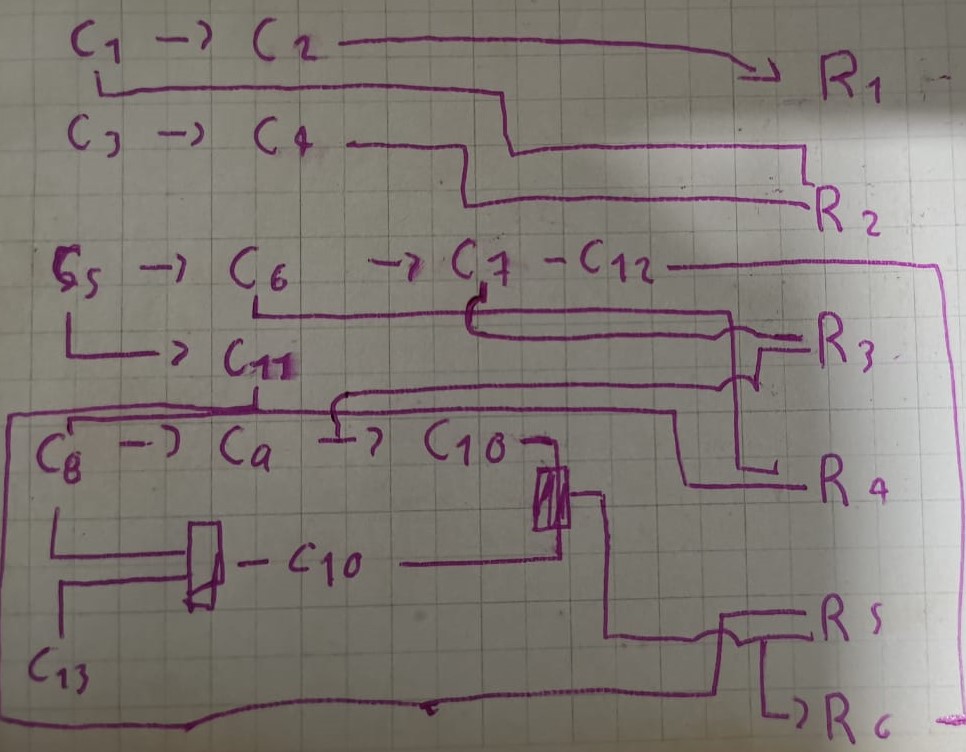 C1 -> C2 -> R1
C3 -> C4 R2
C5 -> C6 -> C7 - C12
R3
-> C11
C8 -> C9 -> C10
R4
- C10
R5
C13
-> R6